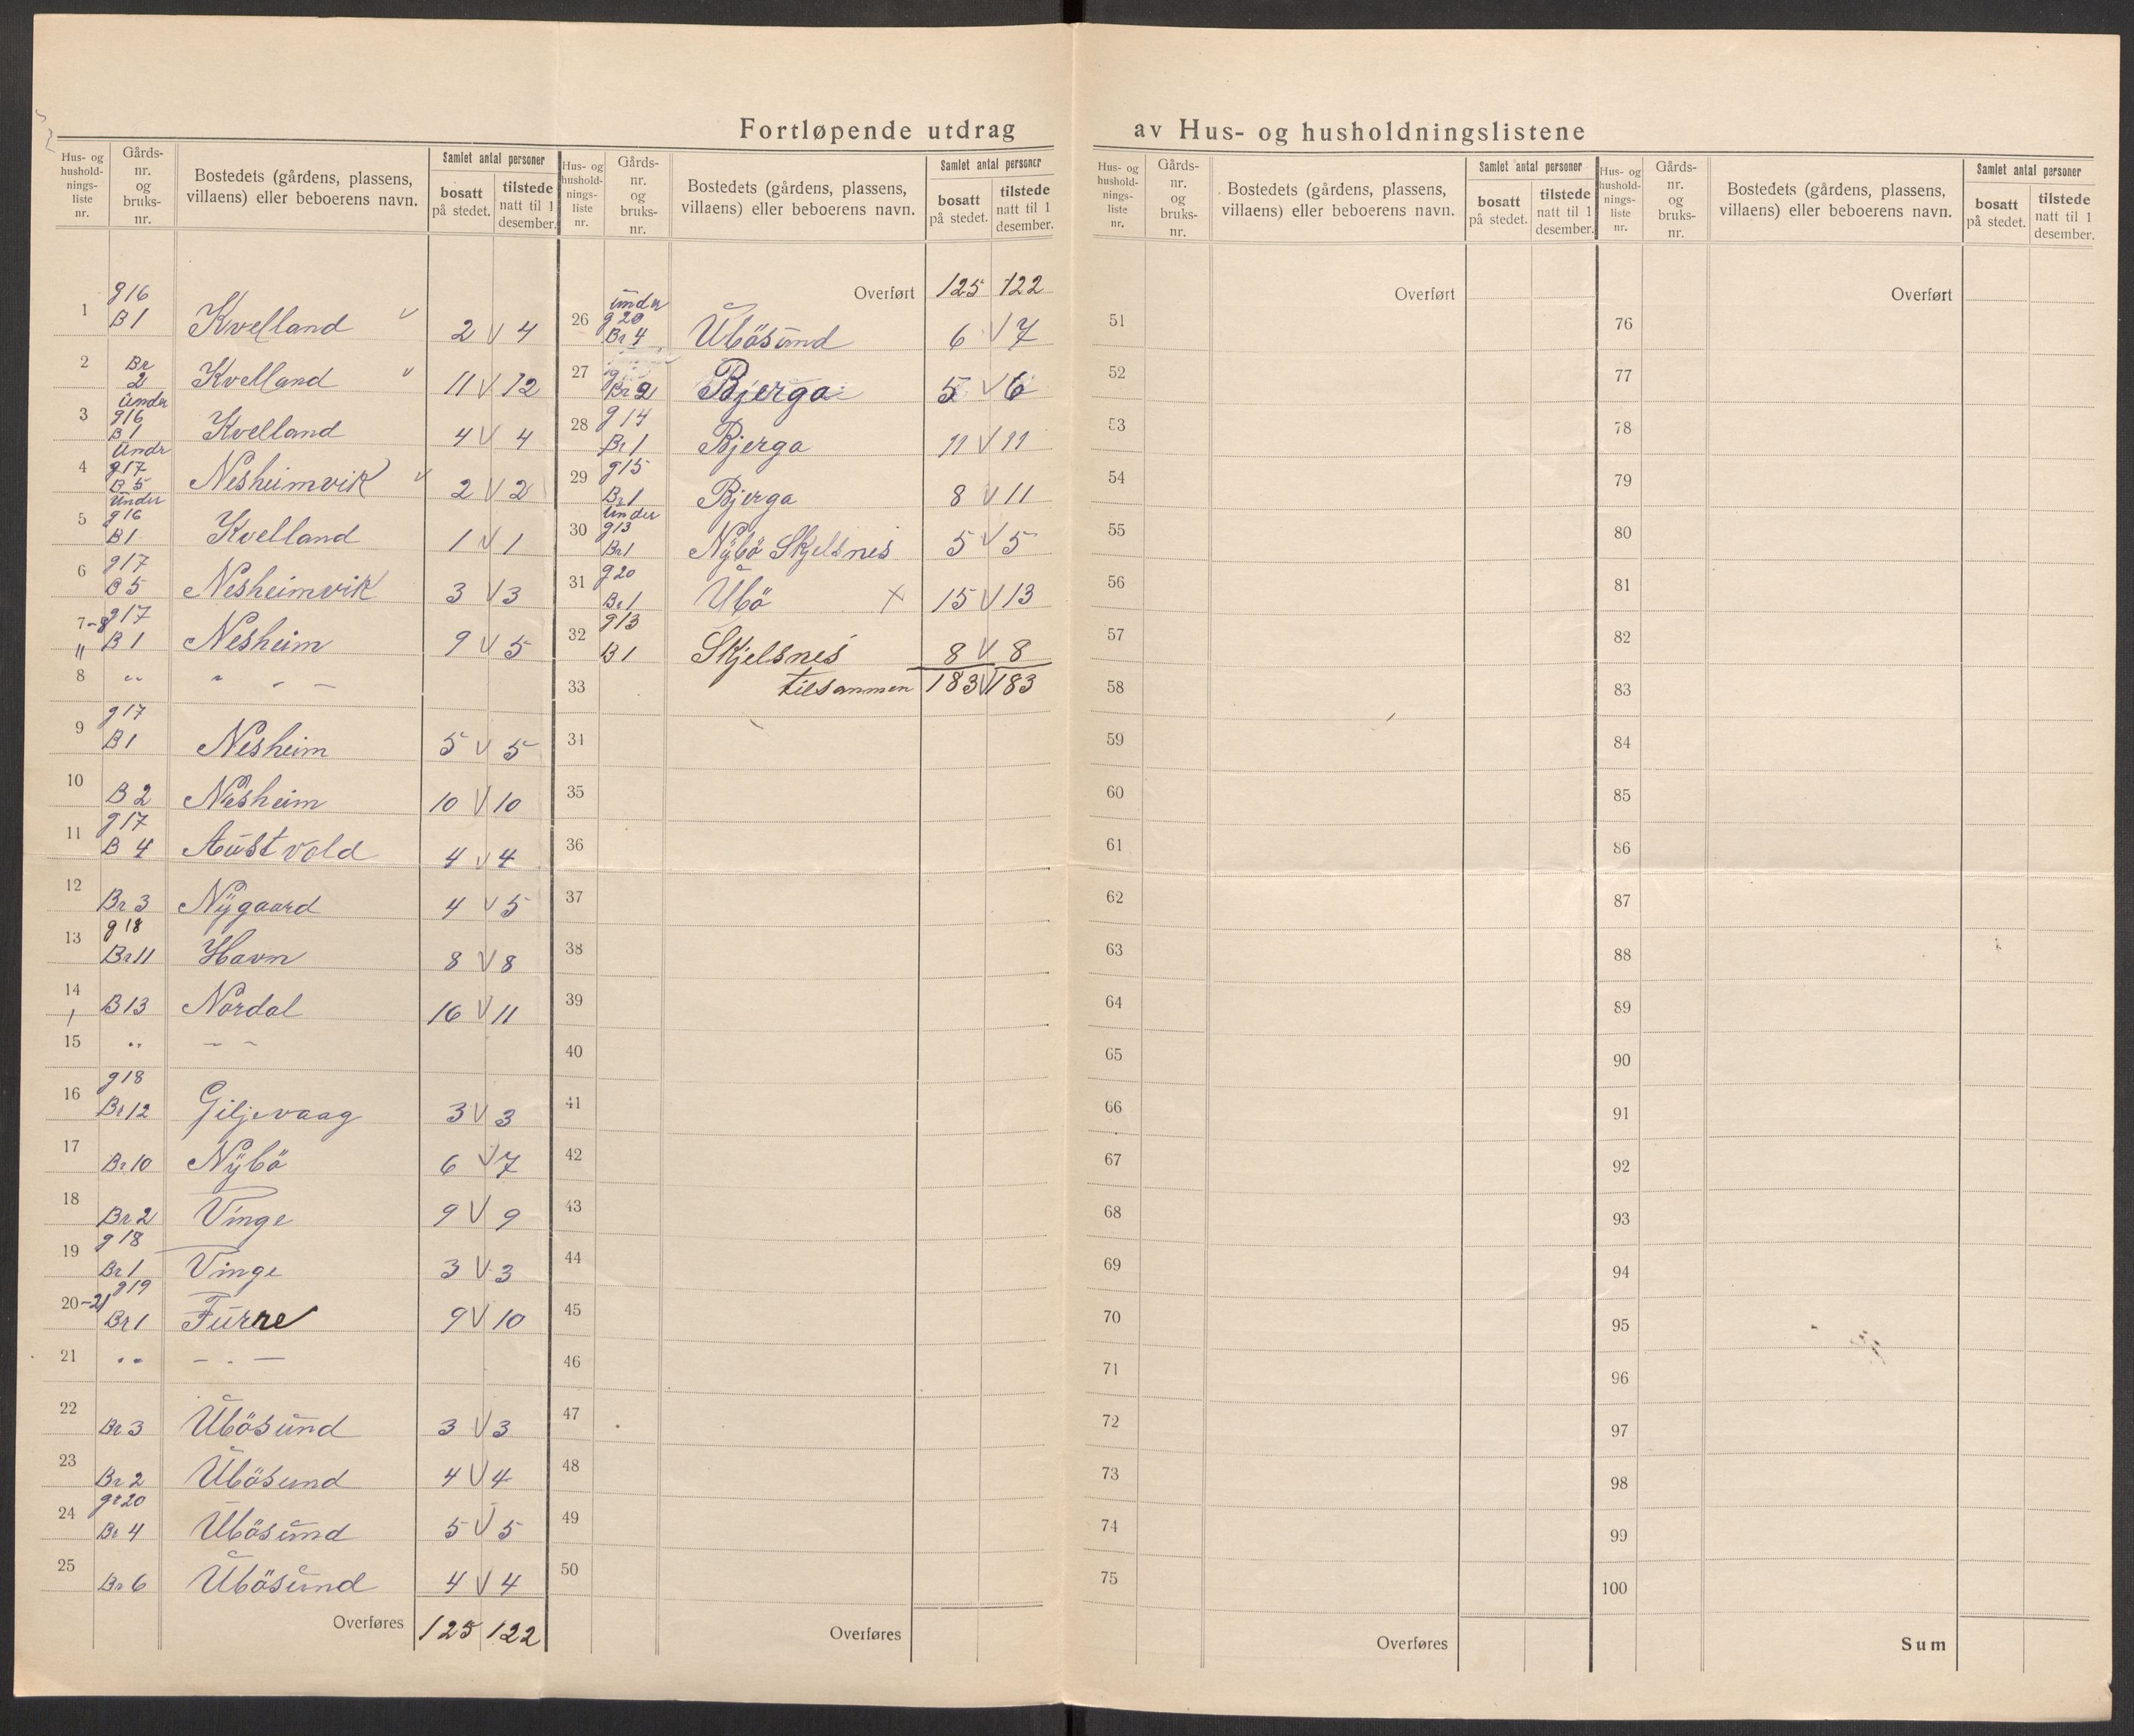 Fortløpende utdrag av Hus- og husholdningslistene
Hus- og hushold-nings-liste nr. | Gårds-nr. og bruks-nr. | Bostedets (gårdens, plassens, villaens) eller beboerens navn. | Samlet antal personer | bosatt på stedet. | tilstede natt til 1 desember.
1 g 16 B 1 Kvelland 2 V 4
2 Br 2 Kvelland 11 V 12
3 under g 16 B 1 Kvelland 4 V 4
4 Undr g 17 B 5 Nesheimvik 2 V 2
5 under g 16 B 1 Kvelland 1 V 1
6 g 17 B 5 Nesheimvik 3 V 3
7-8 g 17 B 1 Nesheim 9 V 5
8 " " - -
9 g 17 B 1 Nesheim 5 V 5
10 B 2 Nesheim 10 V 10
11 g 17 B 4 Austvold 4 V 4
12 Br 3 Nygaard 4 V 5
13 g 18 Br 11 Havn 8 V 8
14 B 13 Nordal 16 V 11
15 " - -
16 g 18 Br 12 Giljevaag 3 V 3
17 Br 10 Nybö 6 V 7
18 Br 2 Vinge 9 V 9
19 g 18 Br 1 Vinge 3 V 3
20-21 g 19 Br 1 Furre 9 V 10
21 " - . -
22 Br 3 Ubösund 3 V 3
23 Br 2 Ubösund 4 V 4
24 gr 20 Br 4 Ubösund 5 V 5
25 Br 6 Ubösund 4 V 4
Overføres 125 122
Hus- og hushold-nings-liste nr. | Gårds-nr. og bruks-nr. | Bostedets (gårdens, plassens, villaens) eller beboerens navn. | Samlet antal personer | bosatt på stedet. | tilstede natt til 1 desember.
Overført 125 122
26 under g 20 Br 4 Ubösund 6 V 7
27 Br 2 Bjerga 5 V 6
28 g 14 Br 1 Bjerga 11 V 11
29 g 15 Br 1 Bjerga 8 V 11
30 Under g 13 Br 1 Nybö Skjelsnes 5 V 5
31 g 20 Br 1 Ubö X 15 V 13
32 g 13 B 1 Skjelsnes 8 V 8
33 tilsammen 183 V 183
31
35
36
37
38
39
40
41
42
43
44
45
46
47
48
49
50
Overføres
Hus- og hushold-nings-liste nr. | Gårds-nr. og bruks-nr. | Bostedets (gårdens, plassens, villaens) eller beboerens navn. | Samlet antal personer | bosatt på stedet. | tilstede natt til 1 desember.
Overført
51
52
53
54
55
56
57
58
59
60
61
62
63
64
65
66
67
68
69
70
71
72
73
74
75
Overføres
Hus- og hushold-nings-liste nr. | Gårds-nr. og bruks-nr. | Bostedets (gårdens, plassens, villaens) eller beboerens navn. | Samlet antal personer | bosatt på stedet. | tilstede natt til 1 desember.
Overført
76
77
78
79
80
81
82
83
84
85
86
87
88
89
90
91
92
93
94
95
96
97
98
99
100
Sum